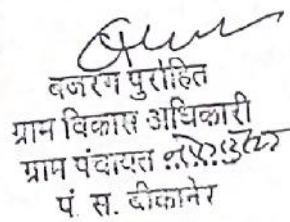 बजरंग पुरोहित
ग्राम विकास अधिकारी
ग्राम पंचायत
पं. स. बीकानेर